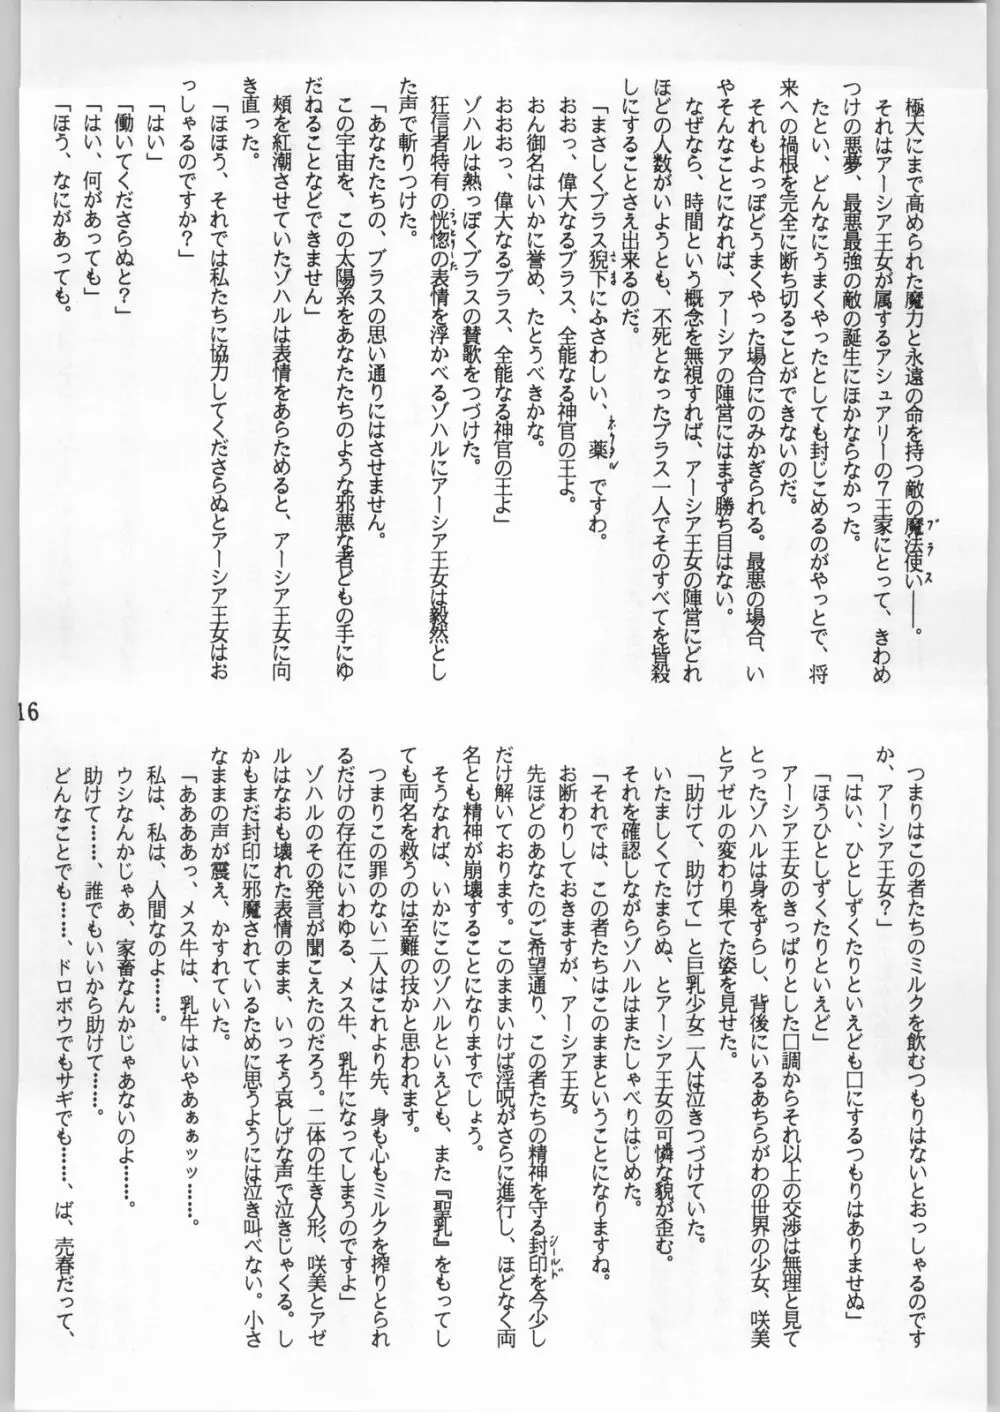 極大にまで高められた魔力と永遠の命を持つ敵の魔法使い――。
それはアーシア王女が属するアシュアリーの7王家にとって、きわめ
つけの悪夢、最悪最強の敵の誕生にほかならなかった。
たとい、どんなにうまくやったとしても封じこめるのがやっとで、将
来への禍根を完全に断ち切ることができないのだ。
それもよっぽどうまくやった場合にのみかぎられる。最悪の場合、い
やそんなことになれば、アーシアの陣営にはまず勝ち目はない。
なぜなら、時間という概念を無視すれば、アーシア王女の陣営にどれ
ほどの人数がいようとも、不死となったブラス一人でそのすべてを皆殺
しにすることさえ出来るのだ。
「まさしくブラス猊下にふさわしい、薬ですわ。
おおっ、偉大なるブラス、全能なる神官の王よ。
おん御名はいかに誉め、たとうべきかな。
おおおっ、偉大なるブラス、全能なる神官の王よ」
ゾハルは熱っぽくブラスの賛歌をつづけた。
狂信者特有の恍惚の表情を浮かべるゾハルにアーシア王女は毅然とし
た声で斬りつけた。
「あなたたちの、ブラスの思い通りにはさせません。
この宇宙を、この太陽系をあなたたちのような邪悪な者どもの手にゆ
だねることなどできません」
頬を紅潮させていたゾハルは表情をあらためると、アーシア王女に向
き直った。
「ほほう、それでは私たちに協力してくださらぬとアーシア王女はお
っしゃるのですか?」
「はい」
「働いてくださらぬと?」
「はい、何があっても」
「ほう、なにがあっても。
つまりはこの者たちのミルクを飲むつもりはないとおっしゃるのです
か、アーシア王女?」
「はい、ひとしずくたりといえども口にするつもりはありませぬ」
「ほうひとしずくたりといえど」
アーシア王女のきっぱりとした口調からそれ以上の交渉は無理と見て
とったゾハルは身をずらし、背後にいるあちらがわの世界の少女、咲美
とアゼルの変わり果てた姿を見せた。
「助けて、助けて」と巨乳少女二人は泣きつづけていた。
いたましくてたまらぬ、とアーシア王女の可憐な貌が歪む。
それを確認しながらゾハルはまたしゃべりはじめた。
「それでは、この者たちはこのままということになりますね。
お断わりしておきますが、アーシア王女。
先ほどのあなたのご希望通り、この者たちの精神を守る封印を今少し
だけ解いております。このままいけば淫呪がさらに進行し、ほどなく両
名とも精神が崩壊することになりますでしょう。
そうなれば、いかにこのゾハルといえども、また『聖乳』をもってし
ても両名を救うのは至難の技かと思われます。
つまりこの罪のない二人はこれより先、身も心もミルクを搾りとられ
るだけの存在にいわゆる、メス牛、乳牛になってしまうのですよ」
ゾハルのその発言が聞こえたのだろう。二体の生き人形、咲美とアゼ
ルはなおも壊れた表情のまま、いっそう哀しげな声で泣きじゃくる。し
かもまだ封印に邪魔されているために思うようには泣き叫べない。小さ
なままの声が震え、かすれていた。
「ああああっ、メス牛は、乳牛はいやあぁぁッッ……。
私は、私は、人間なのよ……。
ウシなんかじゃあ、家畜なんかじゃあないのよ……。
助けて……、誰でもいいから助けて……。
どんなことでも……、ドロボウでもサギでも……、ば、売春だって、
16